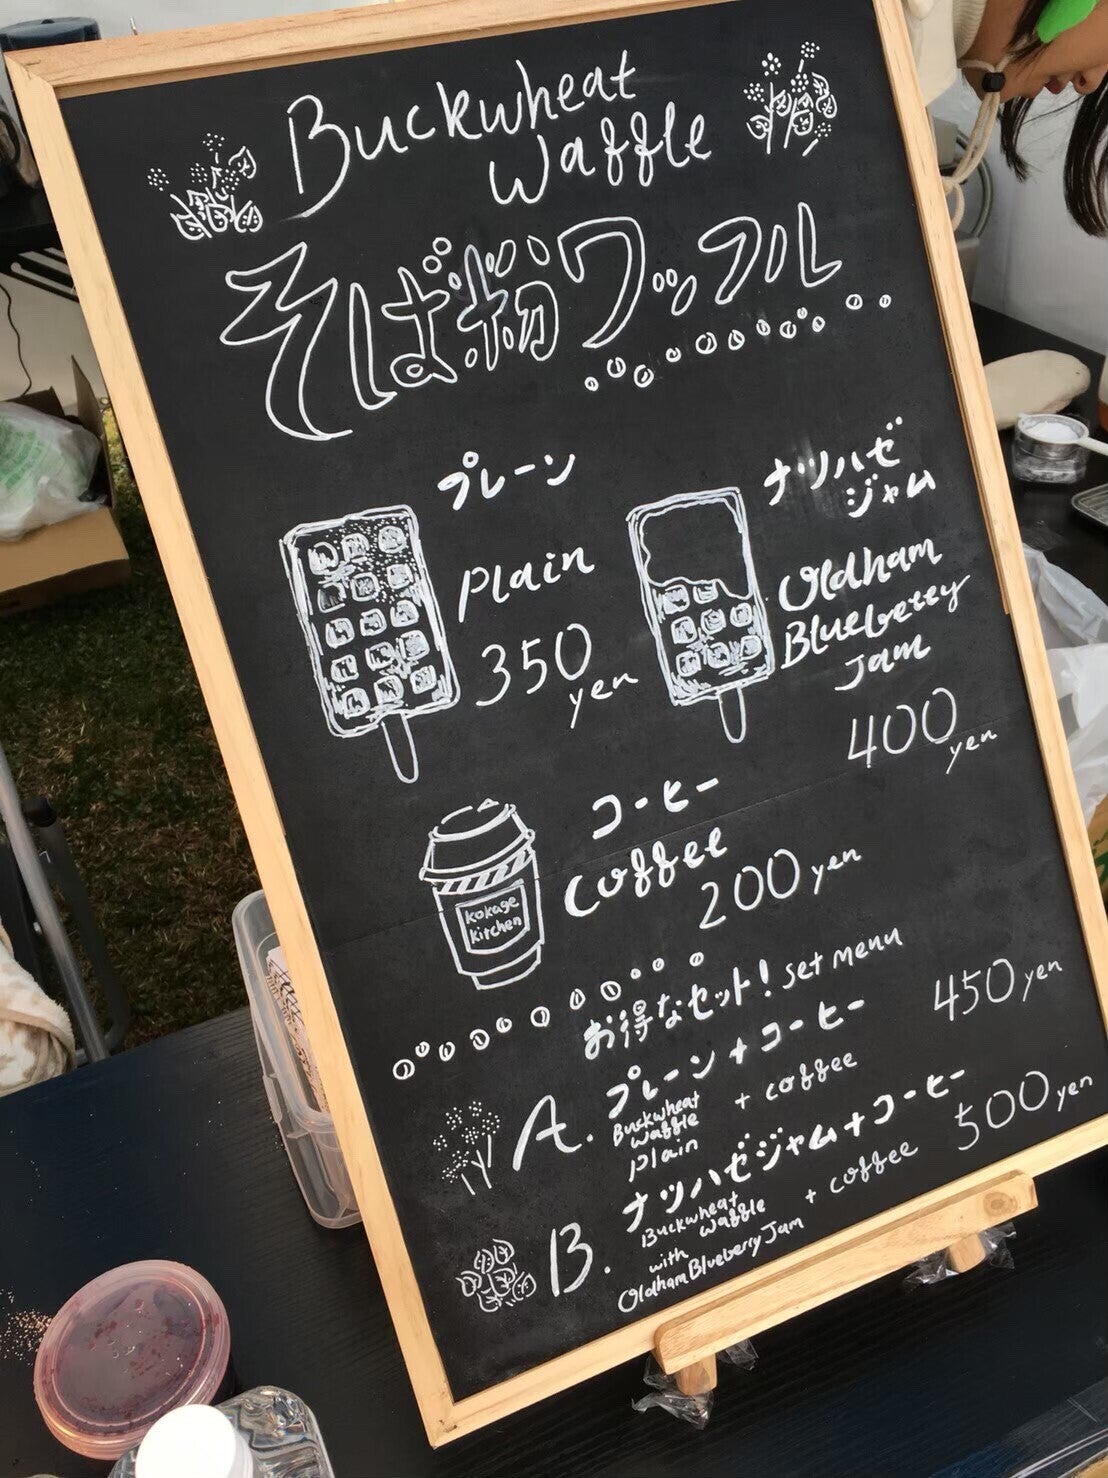 Buckwheat
Waffle
そば粉ワッフル
プレーン
Plain
350
yen
ナツハゼ
ジャム
Oldham
Blueberry
Jam
400
yen
コーヒー
coffee
200 yen
kokage
kitchen
お得なセット! set menu
A. プレーン + コーヒー 450 yen
Buckwheat
Waffle
plain
+ coffee
B. ナツハゼジャム + コーヒー 500 yen
Buckwheat
waffle
with
Oldham Blueberry Jam
+ coffee